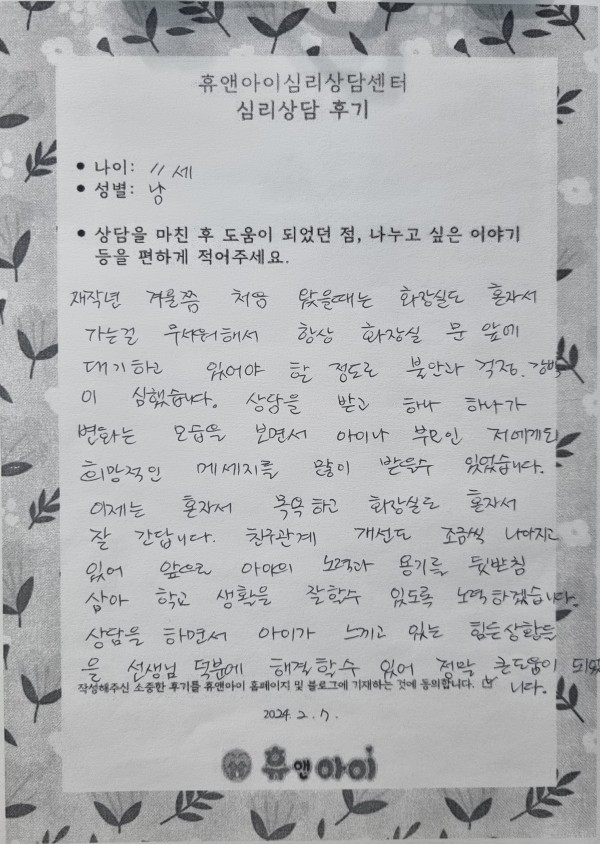 휴앤아이심리상담센터
심리상담 후기
• 나이: 11세
• 성별: 남
• 상담을 마친 후 도움이 되었던 점, 나누고 싶은 이야기
등을 편하게 적어주세요.
재작년 겨울쯤 처음 왔을때는 화장실도 혼자서
가는걸 무서워해서 항상 화장실 문 앞에
대기하고 있어야 할 정도로 불안과 걱정. 강박
이 심했습니다. 상담을 받고 하나 하나가
변화는 모습을 보면서 아이나 부모인 저에게도
희망적인 메세지를 많이 받을수 있었습니다.
이제는 혼자서 목욕하고 화장실도 혼자서
잘 간답니다. 친구관계 개선도 조금씩 나아지고
있어 앞으로 아이의 노력과 용기를 뒷받침
삼아 학교 생활을 잘할수 있도록 노력하겠습니다.
상담을 하면서 아이가 느끼고 있는 힘든상황들
을 선생님 덕분에 해결할수 있어 정말 큰도움이 되었습
니다.
작성해주신 소중한 후기를 휴앤아이 홈페이지 및 블로그에 기재하는 것에 동의합니다. ☑
2024. 2. 7.
휴앤아이